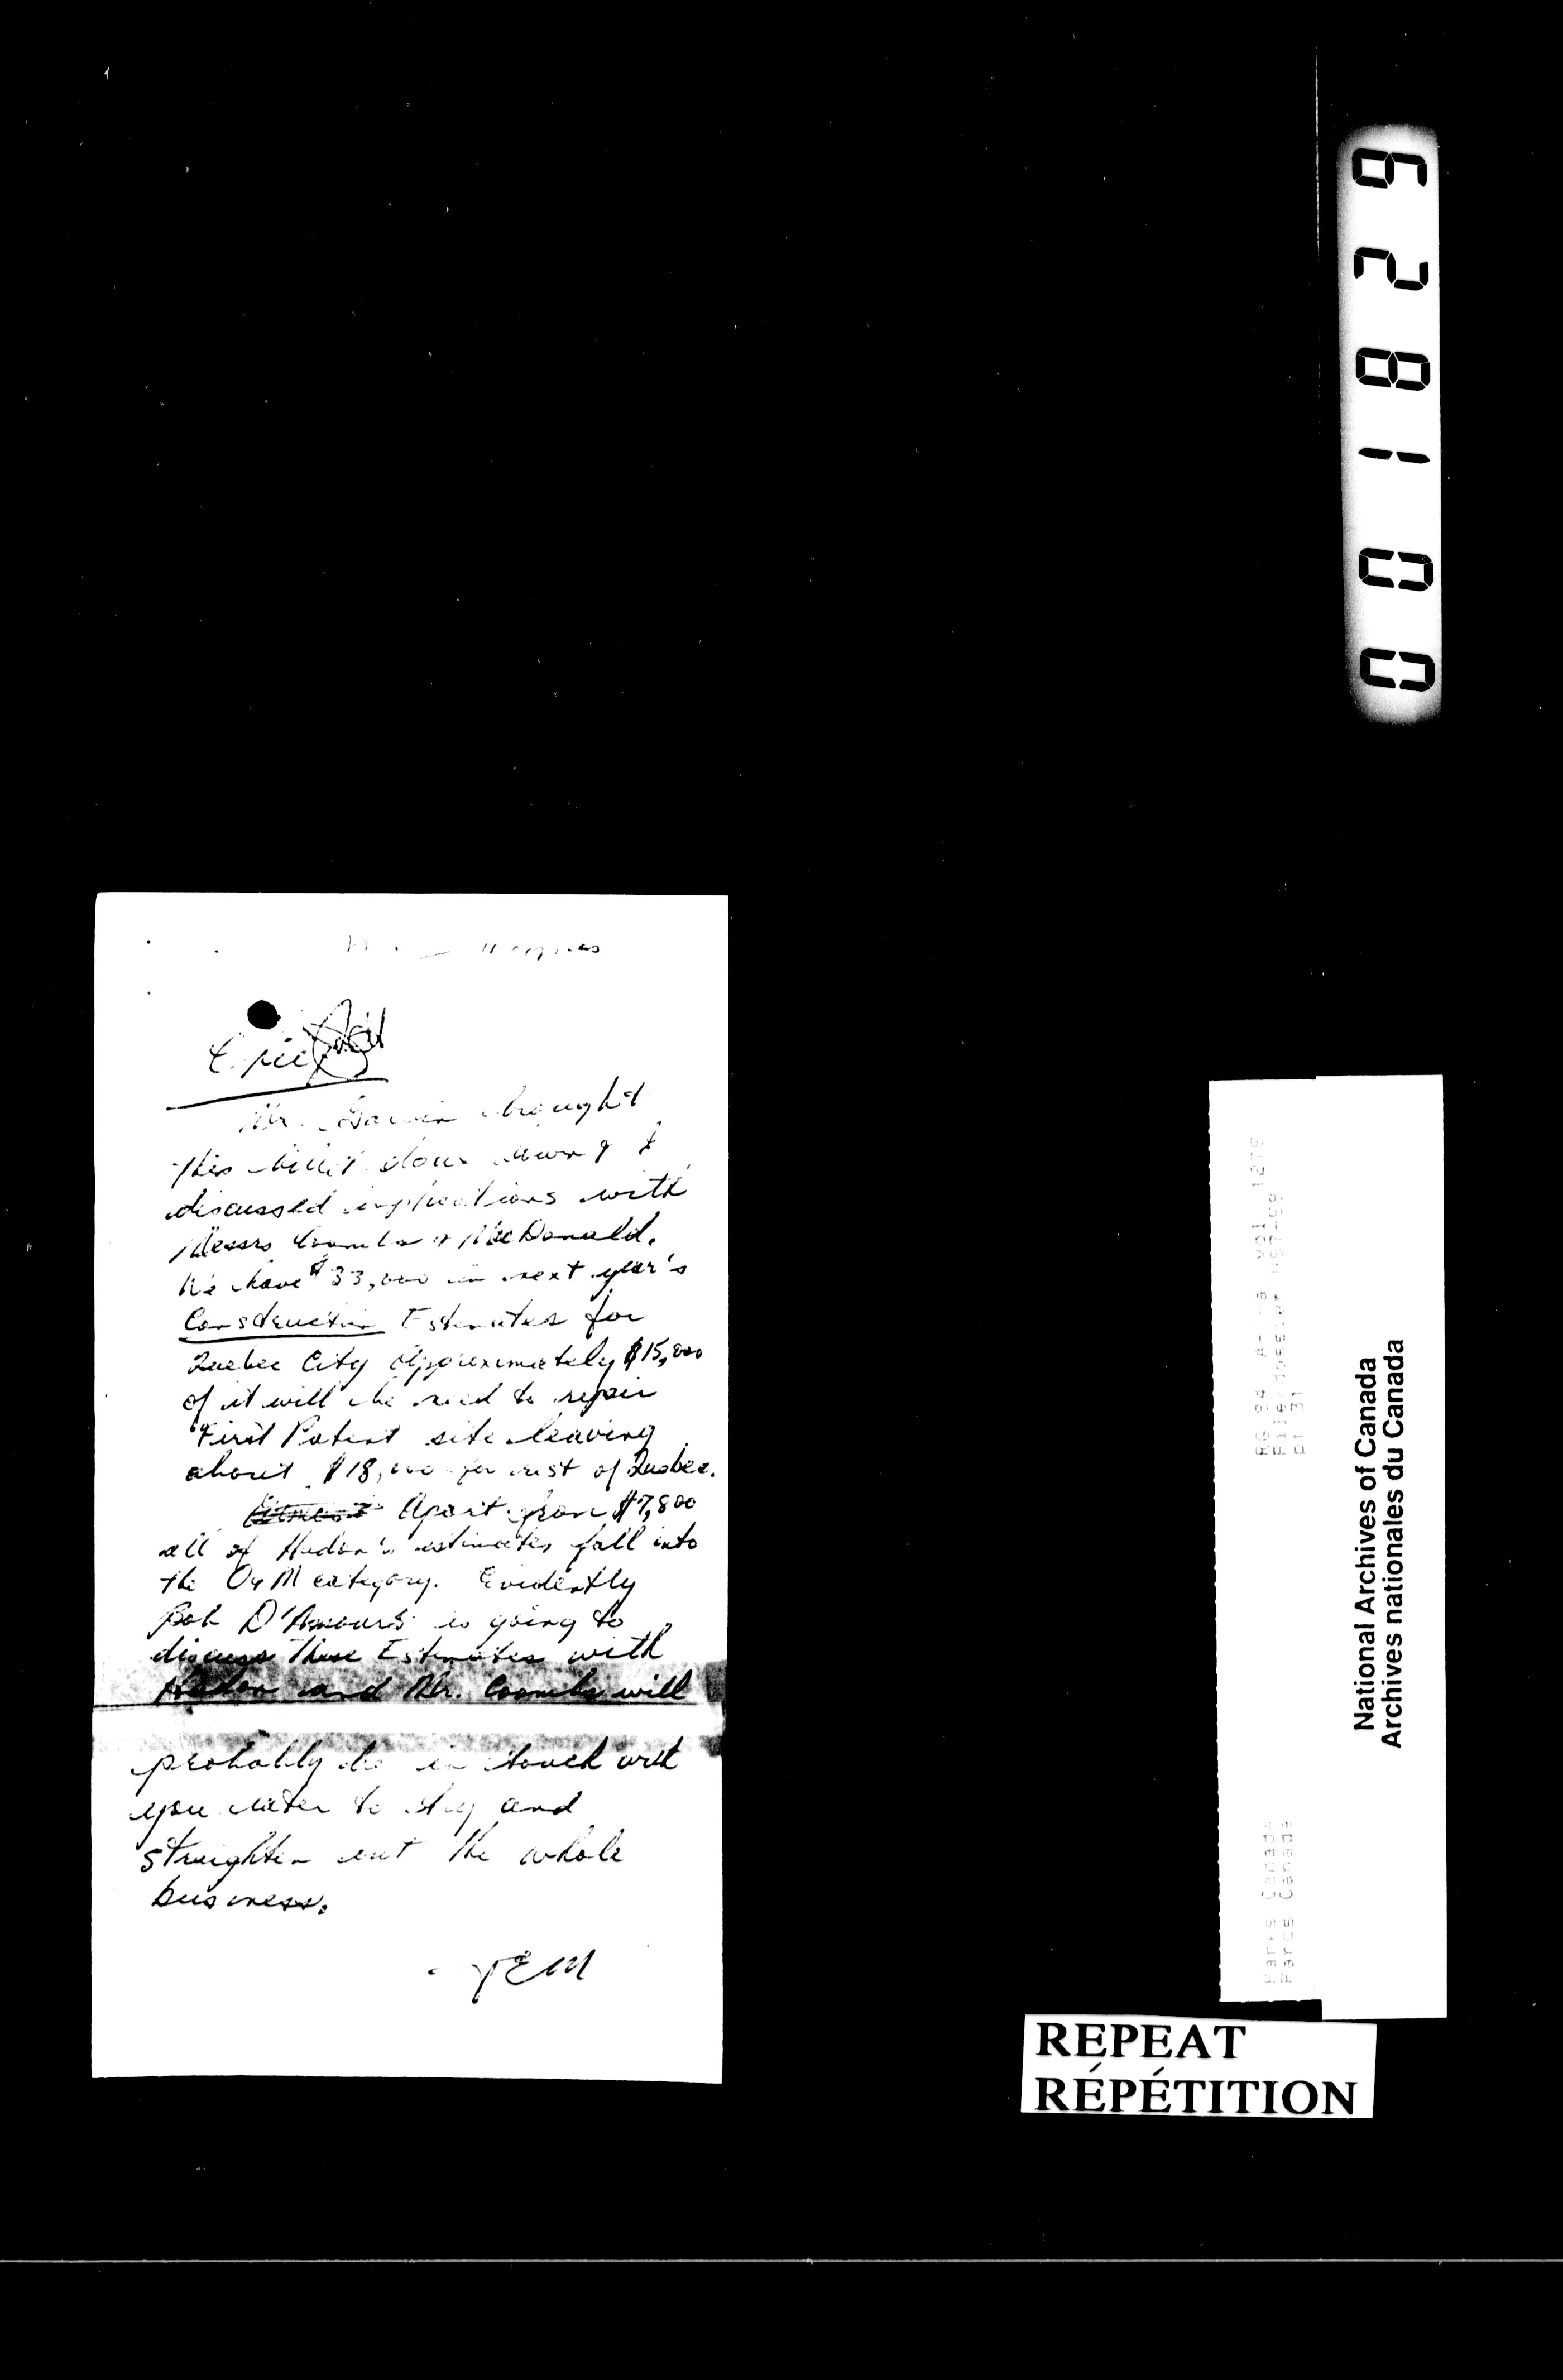 Eric
Mr. brought
this down &
discussed implications with
Messrs Coombs & MacDonald.
We have $33,000 in next year's
Construction Estimates for
Quebec City approximately $15,000
of it will be used to repair
First Patent site leaving
about $18,000 for rest of Quebec.
Apart from $7,800
all of Hudon's estimates fall into
the O & M category. Evidently
Bob D'Amours is going to
discuss these Estimates with
Hudon and Mr. Coombs will
probably be in touch with
you later to try and
straighten out the whole
business.
628100
Parks Canada
Parcs Canada
National Archives of Canada
Archives nationales du Canada
REPEAT
RÉPÉTITION